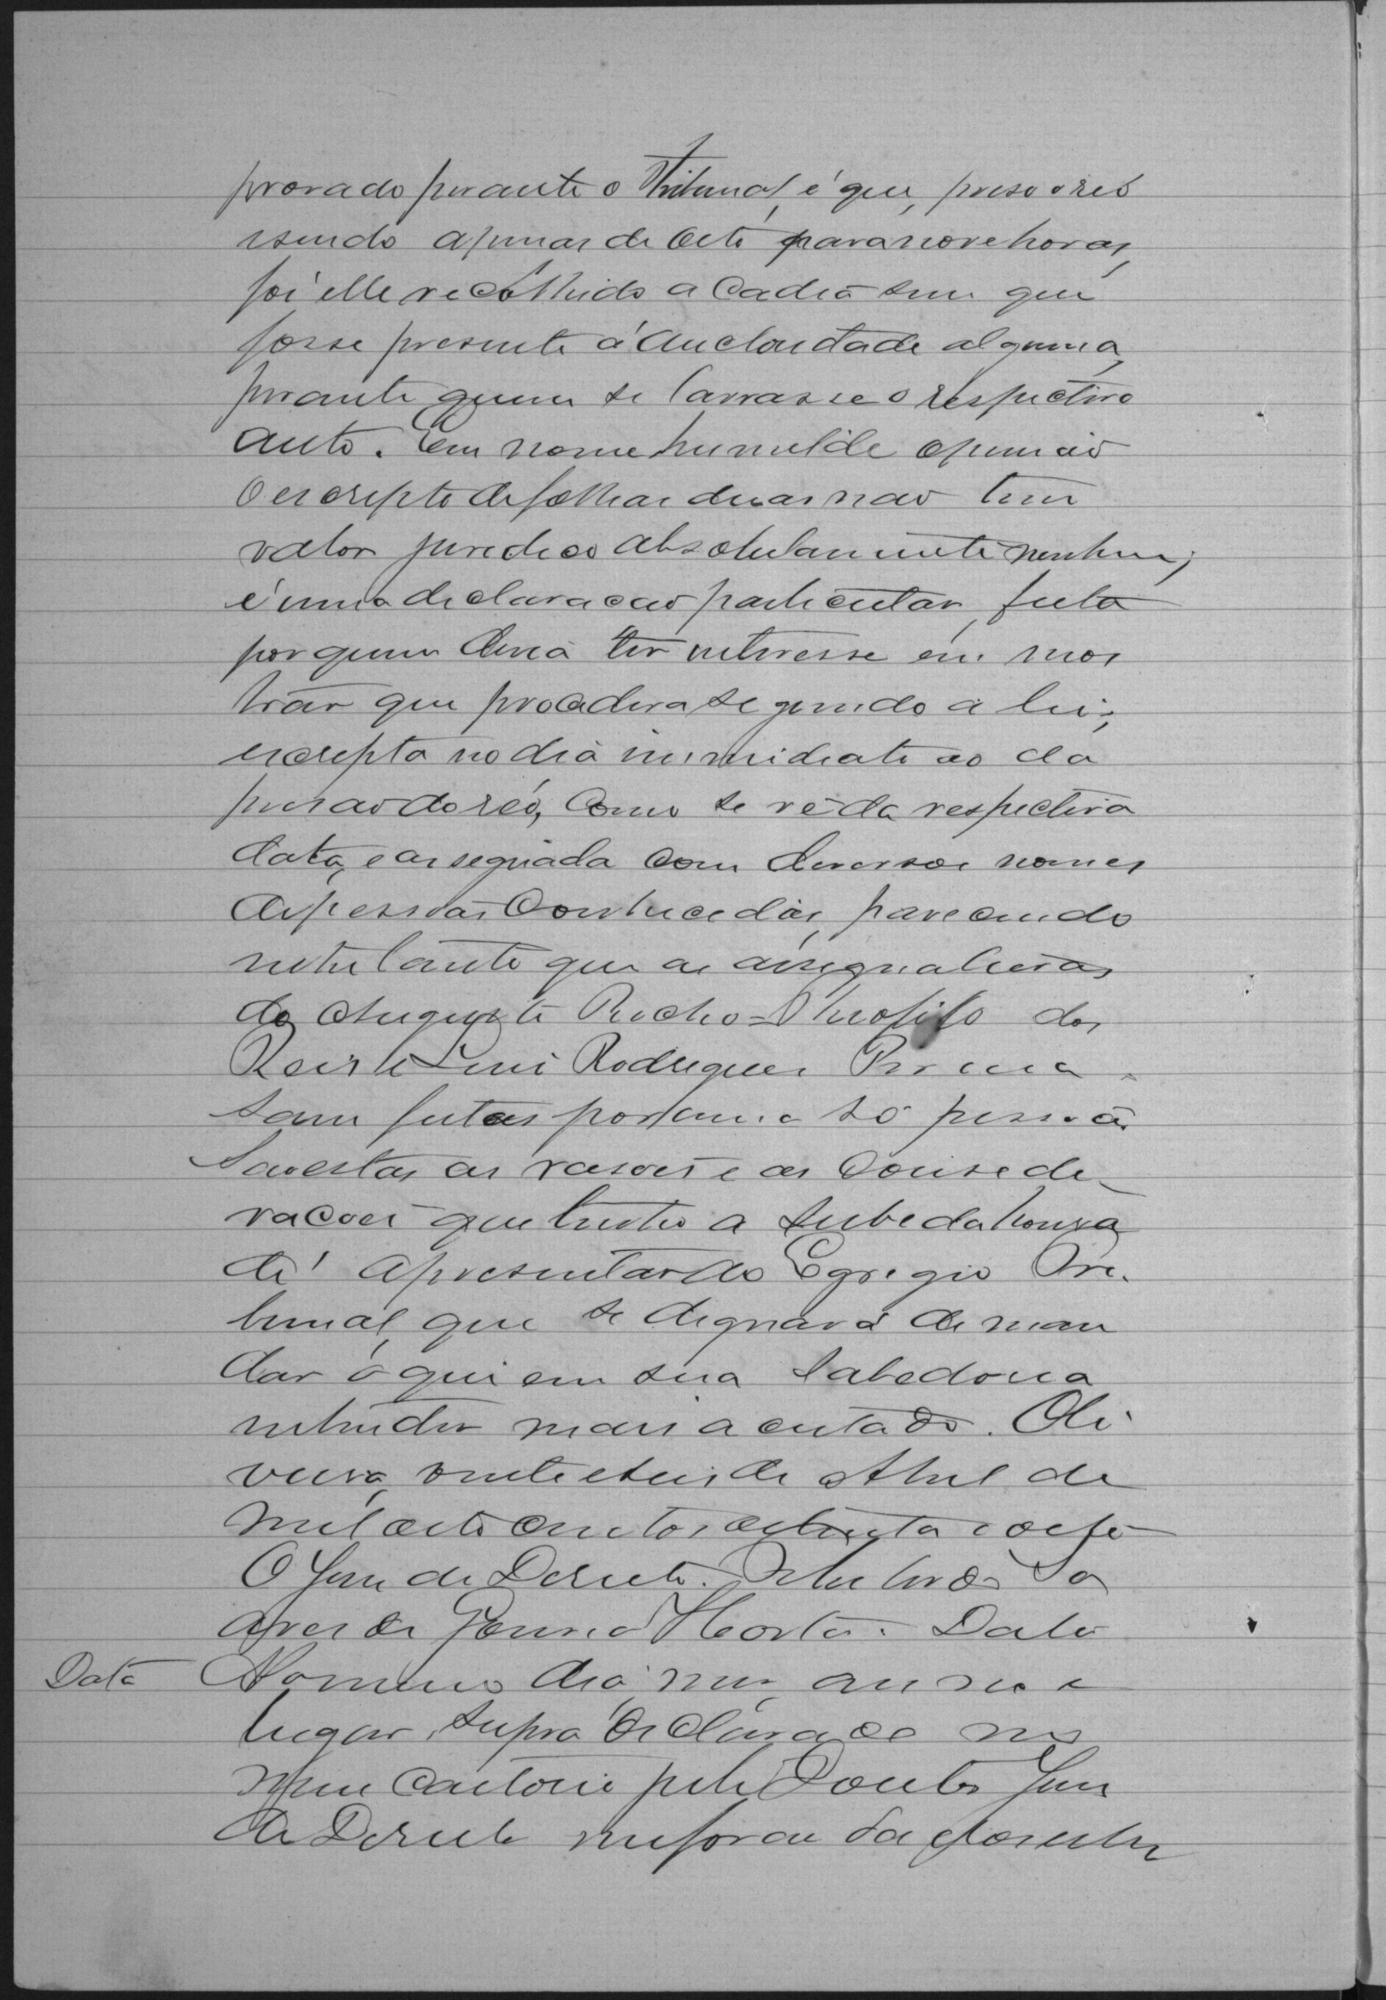 provado perante o Tribunal, é que, preso o réo
sendo apenas de oito para nove horas,
foi elle recolhido a Cadeia sem que
fosse presente á auctoridade alguma,
perante quem se lavrasse o respectivo
auto. Em nome humilde opinião
o escripto de folhas duas não tem
valor juridico absolutamente nenhum;
é uma declaração particular, feita
por quem devia ter interesse em mos
trar que procedera segundo a lei;
escripta no dia immediato ao da
prisão do réo, como se vê da respectiva
data, e assignada com diversos nomes
de pessoas conhecidas, parecendo
que as assignaturas
de Augusto Rocha = Theofilo dos
Reis e Luis Rodrigues
sam feitas por uma só pessoa.
Sam estas as rasões e as conside-
rações que tenho a subida honra
de apresentar ao Egregio Tri-
bunal, que se dignará de man
dar o que em sua sabedoria
entender mais acertado. Oli
veira, vinte e seis de Abril de
mil oito centos e oitenta e oito
O Juiz de Direito. So
ares de Penna Horta. Data
Data No mesmo dia, mez, anno e
lugar supra declarado no
meu cartorio pelo Doutor Juiz
de Direito me foram